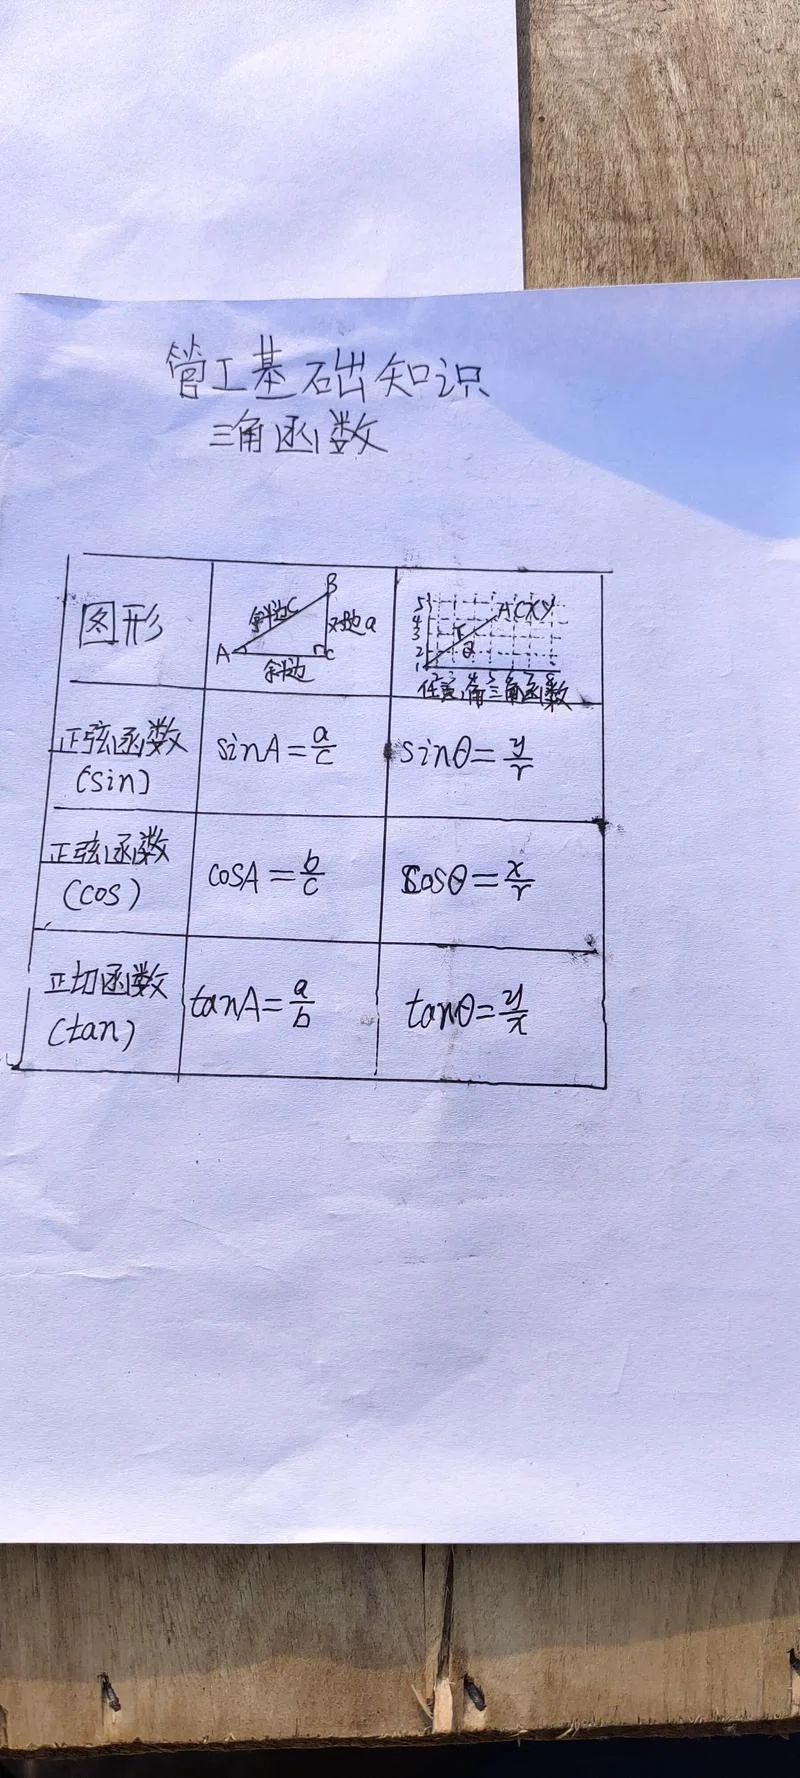 管工基础知识
三角函数
图形
B
斜边C
对边a
A
C
斜边
5
4
3
2
1
A(X,Y
r
2 3 4 5 6 7 8
任意角三角函数
正弦函数
(sin)
sinA=a/c
sinθ=y/r
正弦函数
(cos)
cosA=b/c
cosθ=x/r
正切函数
(tan)
tanA=a/b
tanθ=y/x